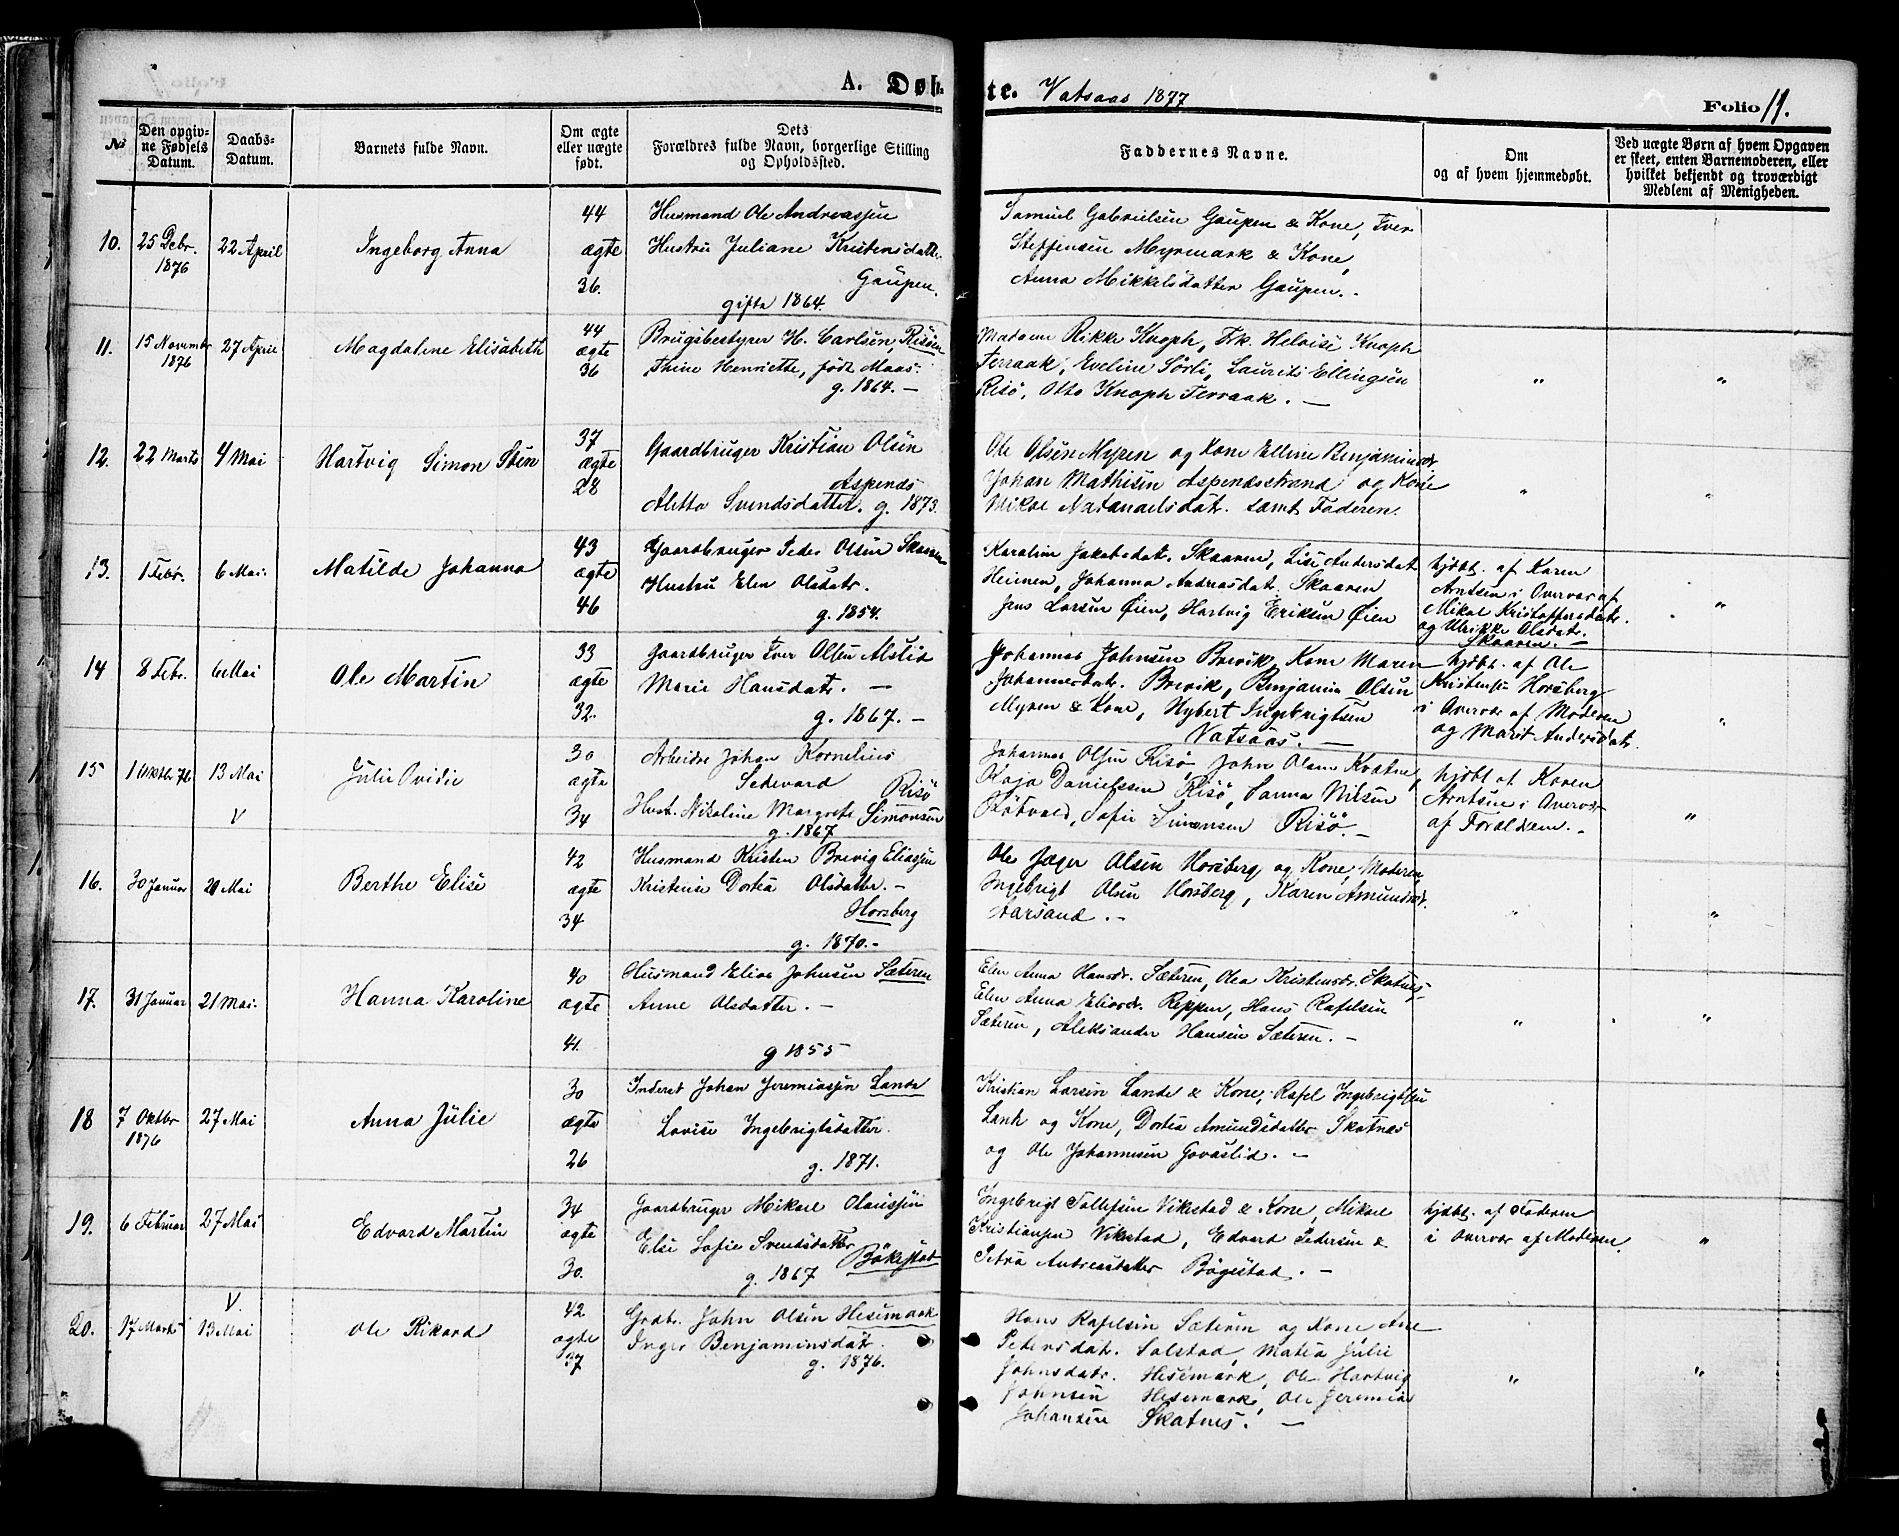 A. Døb
te. Vatsaas 1877
Folio 11.
No
Den opgiv-
ne Fødsels
Datum.
Daabs-
Datum.
Barnets fulde Navn.
Om ægte
eller uægte
født.
Dets
Forældres fulde Navn, borgerlige Stilling
og Opholdssted.
Faddernes Navne.
Om
og af hvem hjemmedøbt.
Ved uægte Børn af hvem Opgaven
er skeet, enten Barnemoderen, eller
hvilket bekjendt og troværdigt
Medlem af Menigheden.
10.
25 Debr.
1876
22 April
Ingeborg Anna
44
ægte
36.
Husmand Ole Andreassen
Hustru Juliane Kristensdatter
Gaupen.
gifte 1864.
Samuel Gabrielsen Gaupen & Kone, Iver
Steffensen Myrmark & Kone,
Anna Mikkelsdatter Gaupen. -
11.
15 November
1876
27 April
Magdaline Elisabeth
44
ægte
36
Brugsbestyrer H. Carlsen, Risöen
Thine Henriette, født Maas.
g. 1864. -
Madam Rikke Knoph, Frk. Heloise Knoph
Terraak, Eveline Sörli, Laurits Ellingsen
Risö, Otto Knoph Terraak. -
"
"
12.
22 Marts
4 Mai
Hartvig Simon Sten
37
ægte
28
Gaardbruger Kristian Olsen
Aspenæs
Aletta Svendsdatter. g. 1873.
Ole Olsen Myren og Kone Elline Benjaminsdr.
Johan Mathisen Aspenæsstrand og Kone
Mikal Natanaelsdatr. samt Faderen.
"
"
13.
1 Febr.
6 Mai.
Matilde Johanna
43
ægte
46
Gaardbruger Peder Olsen Skaaren
Hustru Elen Olsdatr.
g. 1854.
Karoline Jakobsdatr. Skaaren, Lise Andersdat
Heimen, Johanna Andreasdat. Skaaren
Jens Larsen Øien, Hartvig Eriksen Øien
hjdbt. af Karen
Arntsen i Overvær af
Mikal Kristoffersdatr.
og Ulrikke Olsdatr.
Skaaren. -
"
14
8 Febr.
6 Mai
Ole Martin
33
ægte
32.
Gaardbruger Iver Olsen Alslid
Marie Hansdatr. -
g. 1867. -
Johannes Johnsen Brevik, Kone Maren
Johannesdatr. Brevik, Benjamin Olsen
Myren & Kone, Nybert Ingebrigtsen
Vatsaas. -
hjdbt. af Ole
Kristensen Horsberg
i Overvær af Moderen
og Marit Andersdatr.
"
15
1 Oktbr. 76
13 Mai
V
Julie Ovidie
30
ægte
34
Arbeider Johan Kornelius
Sedevard Risö
Hust. Nikoline Margrete Simonsen
g. 1867
Johannes Olsen Risö, John Olsen Kvatne,
Kaja Danielssen Risö, Sanna Nilsen
Rötvold, Sofie Simonsen Risö. -
hjdbt af Karen
Arntsen i Overvær
af Forældrene. -
"
16.
30 Januar
21 Mai
Berthe Elise
42
ægte
34
Husmand Kristen Brevig Eliassen
Kristense Dortea Olsdatter. -
Horsberg
g. 1870. -
Ole Jæger Olsen Horsberg og Kone, Moderen,
Ingebrigt Olsen Horsberg, Karen Amundsdr.
Aarsand. -
"
"
17.
31 Januar
21 Mai.
Hanna Karoline
40
ægte
41.
Husmand Elias Johnsen Sæteren
Anne Olsdatter. -
g 1855
Elen Anna Hansdr. Sæteren, Olea Kristensdr. Skatnes,
Elen Anna Eliasdr. Reppen, Hans Rafelsen
Sæteren, Aleksander Hansen Sæteren. -
"
"
18
7 Oktbr
1876
27 Mai
Anna Julie
30
ægte
26
Inderst Johan Jeremiassen Lande
Lovise Ingebrigtsdatter.
g. 1871.
Kristian Larsen Lande & Kone, Rafel Ingebrigtsen
Lande og Kone, Dortea Amundsdatter Skatnæs
og Ole Johannesen Govaslid. -
19.
6 Februar
27 Mai
Edvard Martin
34
ægte
30.
Gaardbruger Mikael Olaussen
Else Sofie Svendsdatter
g. 1867 Bökestad
Ingebrigt Tollefsen Vikestad & Kone, Mikael
Kristiansen Vikestad, Edvard Pedersen &
Petra Andreasdatter Bögestad. -
hjdbt. af Faderen
i Overvær af Moderen.
"
20.
17 Marts
V.
13 Mai
Ole Rikard
42
ægte
37
Grdb. John Olsen Hesemark
Inger Benjaminsdatr.
g. 1876.
Hans Rafelsen Sæteren og Kone Ane
Petersdatr. Solstad, Matea Julie
Johnsdatr. Hesemark, Ole Hartvig
Johnsen Hesemark, Ole Jeremias
Johansen Skatnes. -
"
"